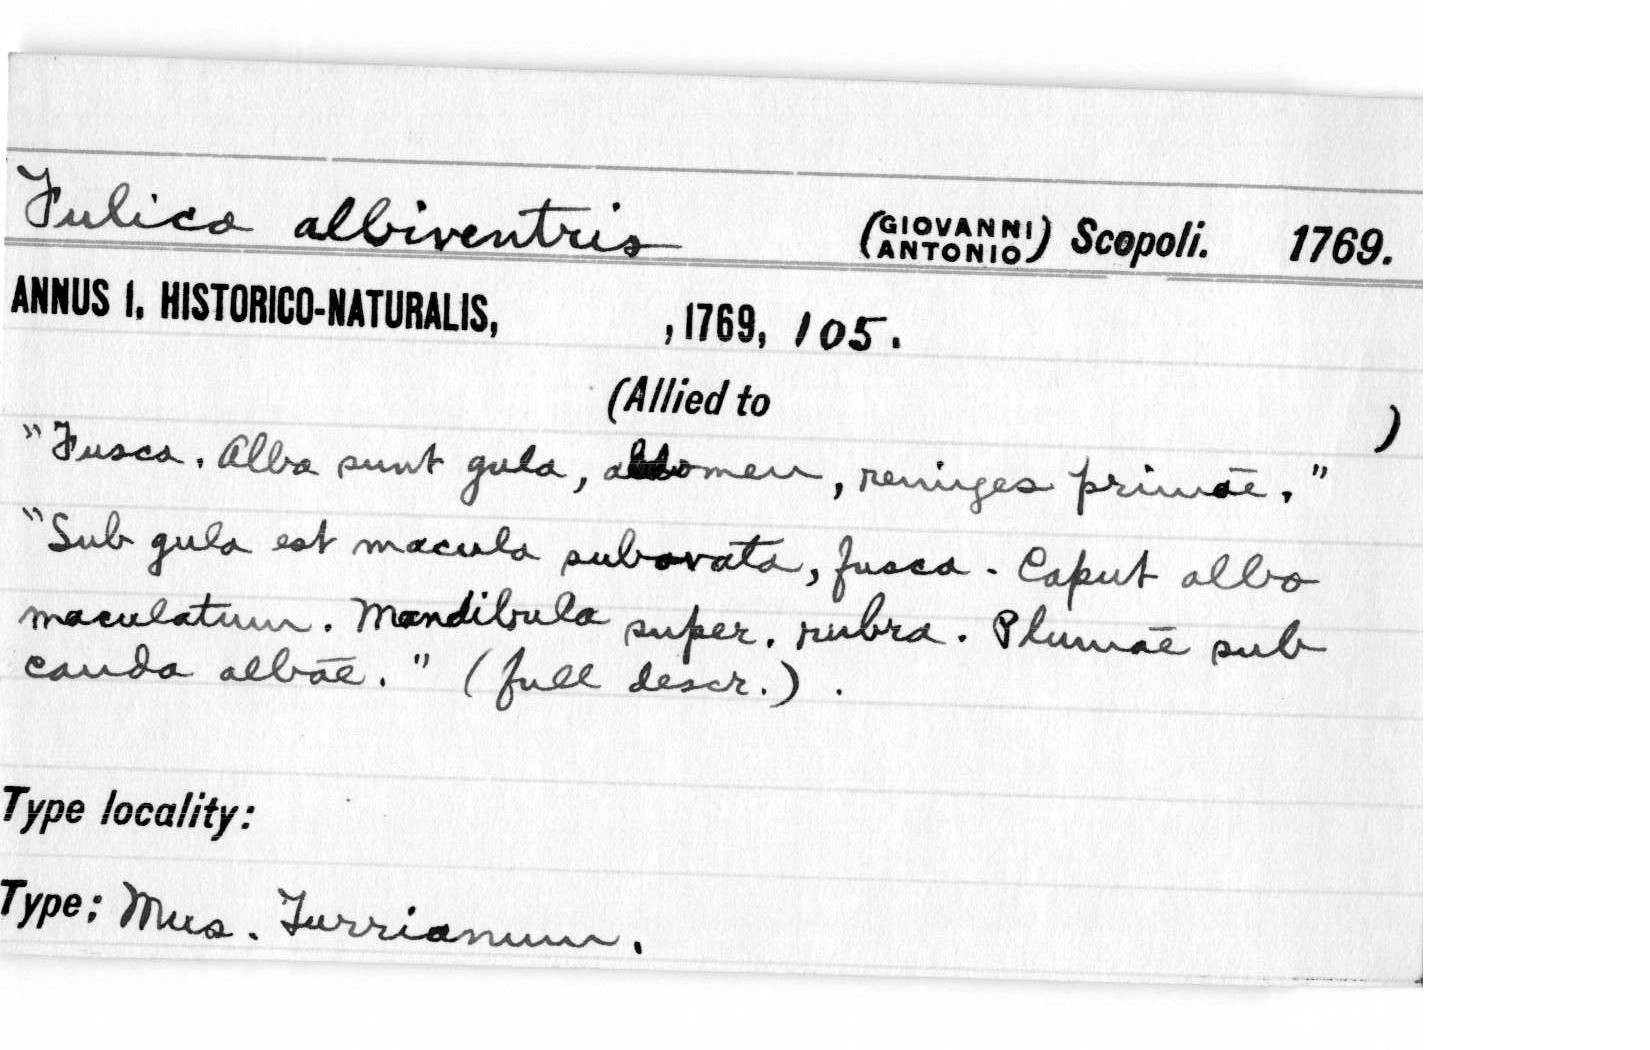 Fulica albiventris (GIOVANNI ANTONIO) Scopoli. 1769.
ANNUS I, HISTORICO-NATURALIS, , 1769, 105.
(Allied to )
"Fusca. Alba sunt gula, abdomen, remiges primāe."
"Sub gula est macula subovata, fusca. Caput albo
maculatum. Mandibula super. rubra. Plumāe sub
cauda albāe." (full descr.).
Type locality:
Type: Mus. Turrianum.